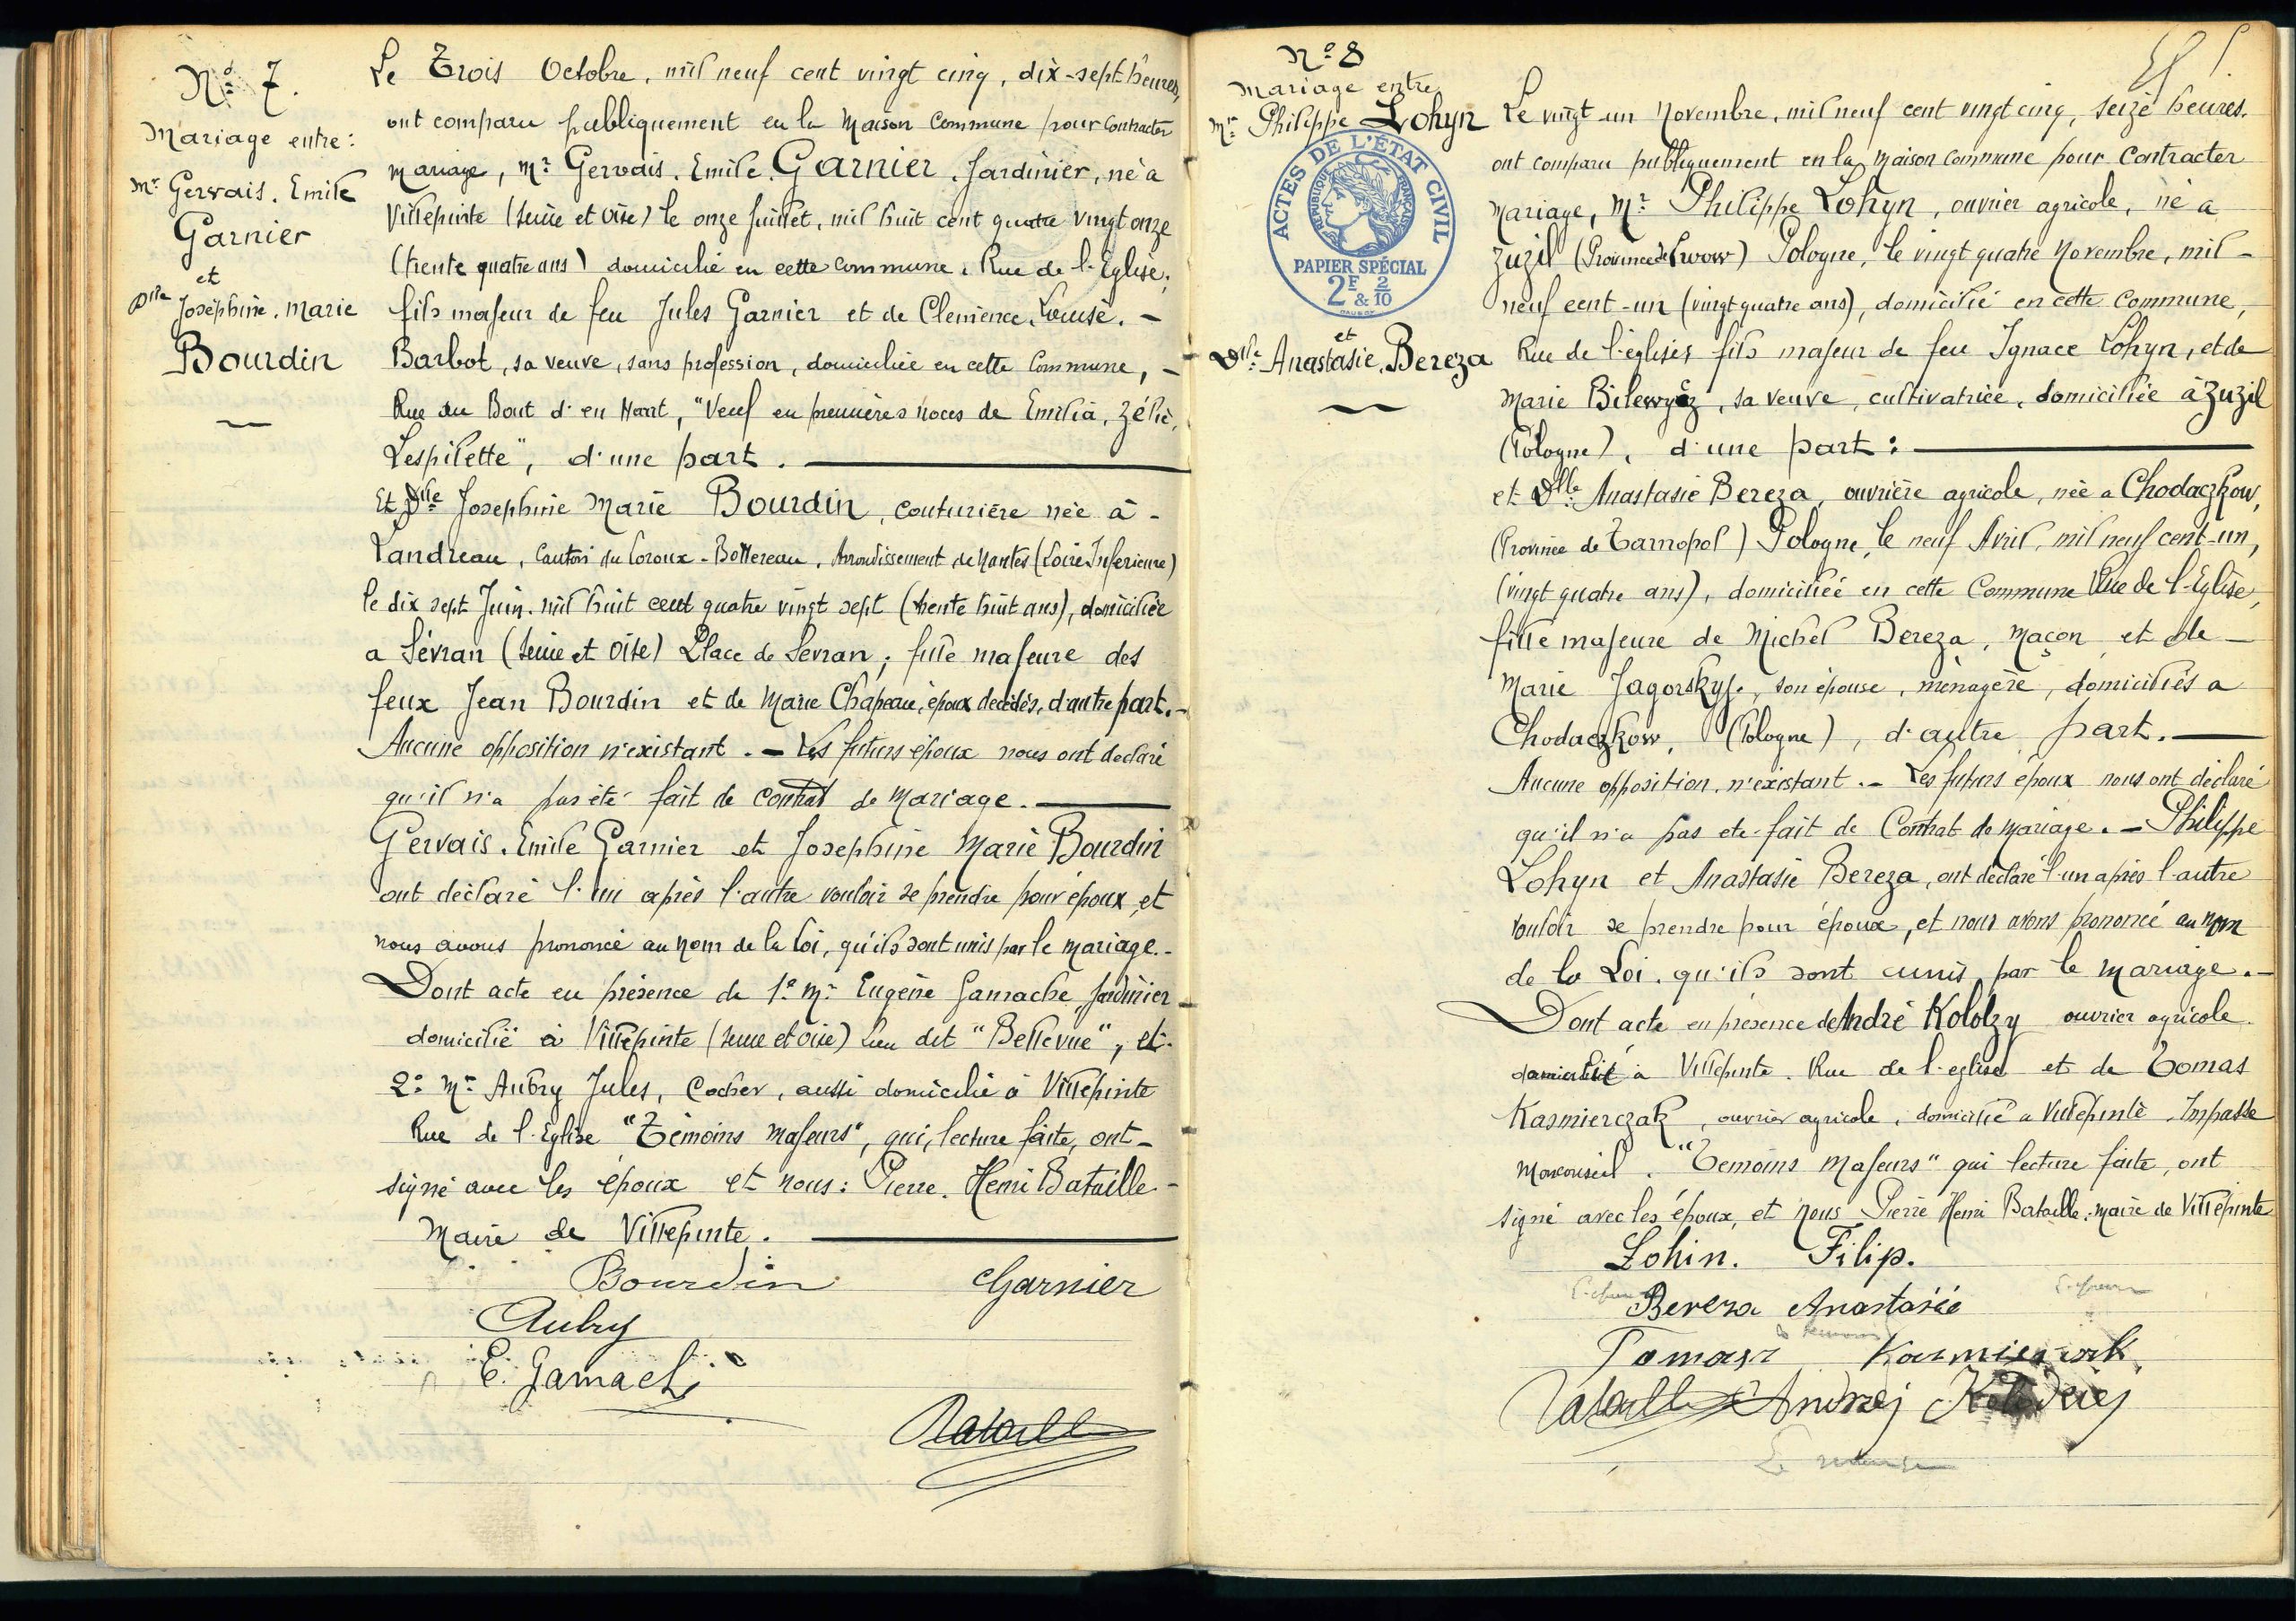 Nº 7.
Mariage entre:
Mr Gervais. Emile
Garnier
et
Dlle Joséphine. Marie
Bourdin
Le Trois Octobre, mil neuf cent vingt cinq, dix-sept heures,
ont comparu publiquement en la Maison Commune pour contracter
mariage, Mr Gervais. Emile. Garnier. Jardinier, né à
Villepinte (Seine et Oise) le onze Juillet, mil huit cent quatre vingt onze
(trente quatre ans) domicilié en cette commune, Rue de l'Eglise;
fils majeur de feu Jules Garnier et de Clemence, Louise. –
Barbot, sa veuve, sans profession, domiciliée en cette Commune, –
Rue du Bout d'en Haut, "Veuf en premières noces de Emilia, Zélie,
Lespilette", d'une part.
Et Dlle Josephine Marie Bourdin, couturière née à -
Landreau, Canton du Loroux-Bottereau, Arrondissement de Nantes (Loire Inferieure)
le dix sept Juin, mil huit cent quatre vingt sept (trente huit ans), domiciliée
a Sévran (Seine et Oise) Place de Sevran; fille majeure des
feux Jean Bourdin et de Marie Chapeau, époux decédés, d'autre part. -
Aucune opposition n'existant. – Les futurs époux nous ont declaré
qu'il n'a pas été fait de contrat de Mariage.
Gervais. Emile Garnier et Josephine Marie Bourdin
ont déclaré l'un après l'autre vouloir se prendre pour époux, et
nous avons prononcé au nom de la loi, qu'ils sont unis par le mariage. -
Dont acte en présence de 1º Mr Eugène Gamache, Jardinier
domicilié à Villepinte (Seine et Oise) Lieu dit "Bellevue", et.
2º Mr Aubry Jules, Cocher, aussi domicilié à Villepinte
Rue de l'Eglise "Témoins Majeurs", qui, lecture faite, ont –
signé avec les époux et nous: Pierre. Henri Bataille -
Maire de Villepinte.
Bourdin Garnier
Aubry
E. Gamache
Bataille
Nº 8
Mariage entre
Mr Philippe Lohyn
ACTES DE L'ÉTAT CIVIL
RÉPUBLIQUE FRANÇAISE
PAPIER SPÉCIAL
2F & 2/10
et
Dlle Anastasie. Bereza
Le vingt-un Novembre, mil neuf cent vingt cinq, seize heures.
ont comparu publiquement en la Maison Commune pour Contracter
Mariage, Mr Philippe Lohyn, ouvrier agricole, né a
Zuzil (Province de Lwow) Pologne, le vingt quatre Novembre, mil –
neuf cent-un (vingt quatre ans), domicilié en cette Commune,
Rue de l'église, fils majeur de feu Ignace Lohyn, et de
Marie, sa veuve, cultivatrice, domiciliée à Zuzil
(Pologne), d'une part:
et Dlle Anastasie Bereza, ouvrière agricole, née a Chodaczkow,
(Province de Tarnopol) Pologne, le neuf Avril, mil neuf cent-un,
(vingt quatre ans), domiciliée en cette Commune Rue de l'Eglise,
fille majeure de Michel Bereza, Maçon et de –
Marie, son épouse, ménagère, domiciliés a
Chodaczkow, (Pologne), d'autre part.
Aucune opposition, n'existant. – Les futurs époux nous ont déclaré
qu'il n'a pas été fait de Contrat de Mariage. – Philippe
Lohyn et Anastasie Bereza, ont déclaré l'un après l'autre
vouloir se prendre pour époux, et nous avons prononcé au nom
de la Loi. qu'ils sont unis par le mariage. –
Dont acte en présence de André Kololzy ouvrier agricole.
domicilié à Villepinte. Rue de l'eglise et de Tomas
Kasmierczak, ouvrier agricole, domicilié a Villepinte. Impasse
"Temoins Majeurs" qui lecture faite, ont
signé avec les époux, et nous Pierre Henri Bataille. maire de Villepinte
Lohin. Filip.
Bereza Anastasie
Tomasz
Bataille Andrzej